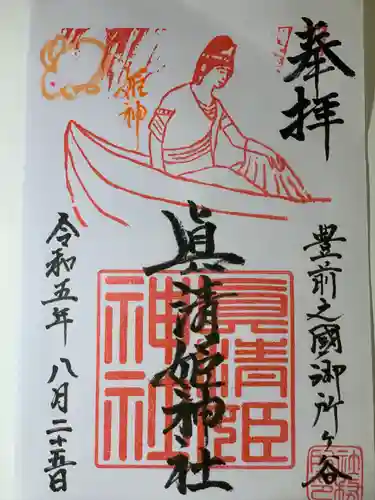 奉拝
豊前之國御所ヶ谷
眞清姫神社
眞清姫神社
姫神
令和五年 八月二十五日